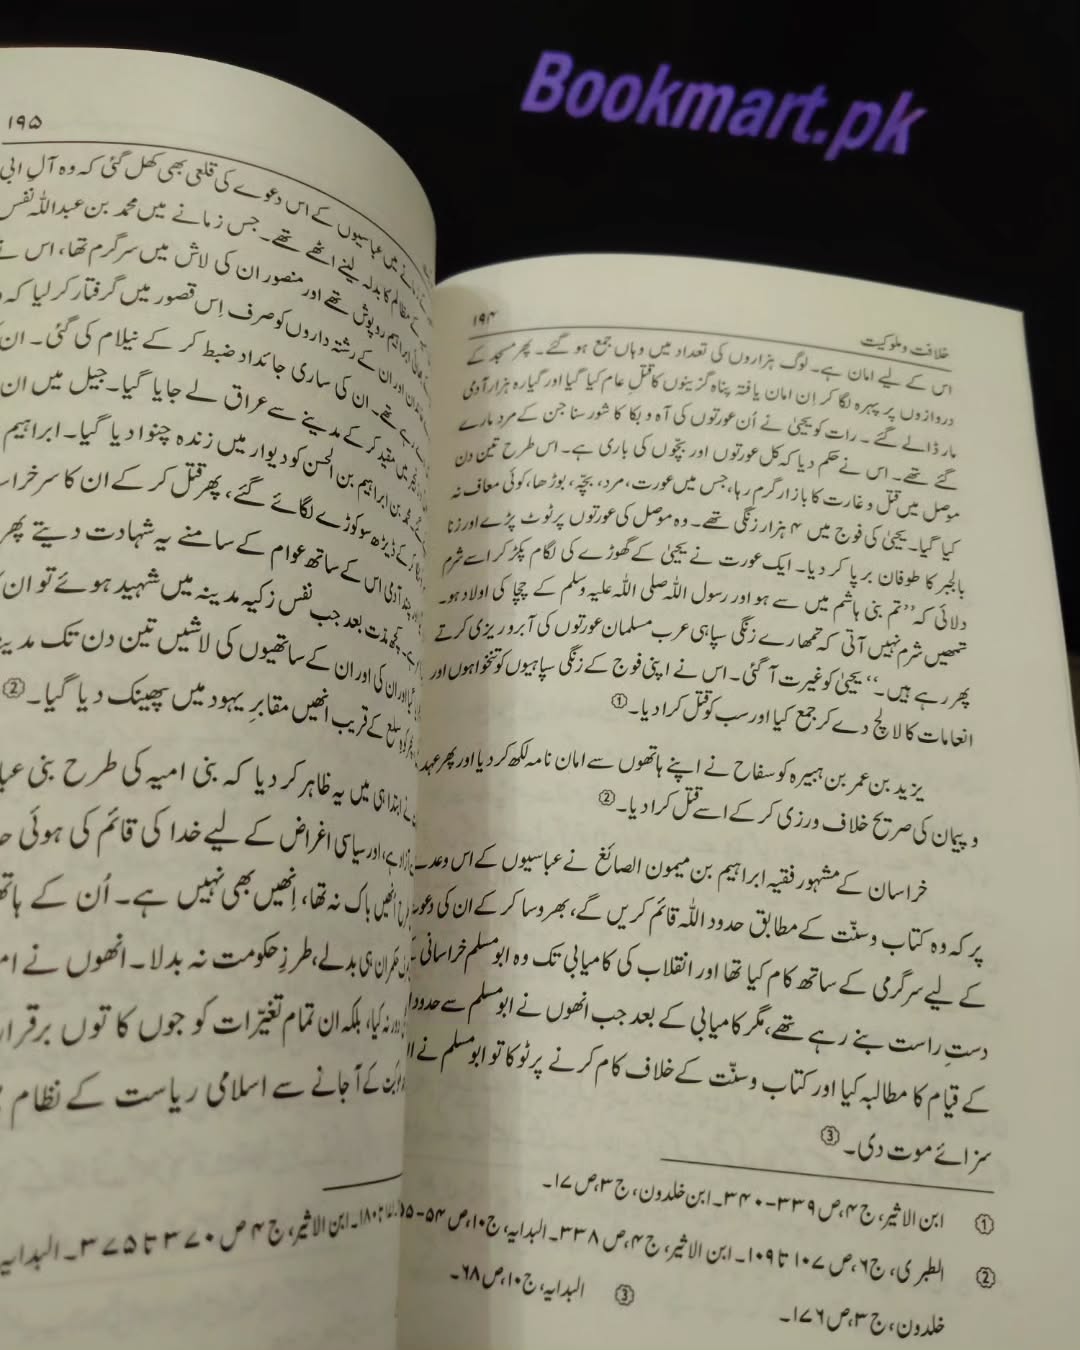 Bookmart.pk
۱۹۴
خلافت و ملوکیت
اس کے لیے امان ہے۔ لوگ ہزاروں کی تعداد میں وہاں جمع ہو گئے۔ پھر مسجد کے
دروازوں پر پہرہ لگا کر اِن امان یافتہ پناہ گزینوں کا قتلِ عام کیا گیا اور گیارہ ہزار آدمی
مار ڈالے گئے۔ رات کو یحییٰ نے اُن عورتوں کی آہ و بکا کا شور سنا جن کے مرد مارے
گئے تھے۔ اس نے حکم دیا کہ کل عورتوں اور بچّوں کی باری ہے۔ اس طرح تین دن
موصل میں قتل و غارت کا بازار گرم رہا، جس میں عورت، مرد، بچّہ، بوڑھا، کوئی معاف نہ
کیا گیا۔ یحییٰ کی فوج میں ۴ ہزار زنگی تھے۔ وہ موصل کی عورتوں پر ٹوٹ پڑے اور زنا
بالجبر کا طوفان برپا کر دیا۔ ایک عورت نے یحییٰ کے گھوڑے کی لگام پکڑ کر اسے شرم
دلائی کہ ’’تم بنی ہاشم میں سے ہو اور رسول اللہ صلی اللہ علیہ وسلم کے چچا کی اولاد ہو۔
تمھیں شرم نہیں آتی کہ تمھارے زنگی سپاہی عرب مسلمان عورتوں کی آبرو ریزی کرتے
پھر رہے ہیں۔‘‘ یحییٰ کو غیرت آ گئی۔ اس نے اپنی فوج کے زنگی سپاہیوں کو تنخواہوں اور
انعامات کا لالچ دے کر جمع کیا اور سب کو قتل کرا دیا۔①
یزید بن عمر بن ہبیرہ کو سفاح نے اپنے ہاتھوں سے امان نامہ لکھ کر دیا اور پھر عہد
و پیمان کی صریح خلاف ورزی کر کے اسے قتل کرا دیا۔②
خراسان کے مشہور فقیہ ابراہیم بن میمون الصائغ نے عباسیوں کے اس وعدے
پر کہ وہ کتاب و سنّت کے مطابق حدود اللہ قائم کریں گے، بھروسا کر کے ان کی دعوت
کے لیے سرگرمی کے ساتھ کام کیا تھا اور انقلاب کی کامیابی تک وہ ابو مسلم خراسانی
دستِ راست بنے رہے تھے، مگر کامیابی کے بعد جب انھوں نے ابو مسلم سے حدود
کے قیام کا مطالبہ کیا اور کتاب و سنّت کے خلاف کام کرنے پر ٹوکا تو ابو مسلم نے
سزائے موت دی۔③
① ابن الاثیر، ج ۴، ص ۳۳۹-۳۴۰۔ ابن خلدون، ج ۳، ص ۱۷۔
② الطبری، ج ۶، ص ۱۰۷ تا ۱۰۹۔ ابن الاثیر، ج ۴، ص ۳۳۸۔ البدایہ، ج ۱۰، ص ۵۴-۵۵
خلدون، ج ۳، ص ۱۷۶۔ ③ البدایہ، ج ۱۰، ص ۶۸۔
۱۹۵
میں عباسیوں کے اس دعوے کی قلعی بھی کھل گئی کہ وہ آلِ ابی
کے مظالم کا بدلہ لینے اٹھے تھے۔ جس زمانے میں محمد بن عبداللہ نفس
ابراہیم روپوش تھے اور منصور ان کی تلاش میں سرگرم تھا، اس نے
اور ان کے رشتہ داروں کو صرف اِس قصور میں گرفتار کر لیا کہ
تھے۔ ان کی ساری جائداد ضبط کر کے نیلام کی گئی۔ ان
میں مقید کر کے مدینے سے عراق لے جایا گیا۔ جیل میں ان
محمد بن ابراہیم بن الحسن کو دیوار میں زندہ چنوا دیا گیا۔ ابراہیم
کے ڈیڑھ سو کوڑے لگائے گئے، پھر قتل کر کے ان کا سر خراسا
چند آدمی اس کے ساتھ عوام کے سامنے یہ شہادت دیتے پھر
کچھ مدّت بعد جب نفس زکیہ مدینہ میں شہید ہوئے تو ان
اور ان کی اور ان کے ساتھیوں کی لاشیں تین دن تک مدینہ
سلع کے قریب انھیں مقابرِ یہود میں پھینک دیا گیا۔②
ابتدا ہی میں یہ ظاہر کر دیا کہ بنی امیہ کی طرح بنی عبا
اور سیاسی اغراض کے لیے خدا کی قائم کی ہوئی
انھیں باک نہ تھا، اِنھیں بھی نہیں ہے۔ اُن کے ہاتھ
حکمران ہی بدلے، طرزِ حکومت نہ بدلا۔ انھوں نے
نہ کیا، بلکہ ان تمام تغیّرات کو جوں کا توں برقرار
کے آ جانے سے اسلامی ریاست کے نظام
ابن الاثیر، ج ۴ ص ۳۷۰ تا ۳۷۵۔ البدایہ